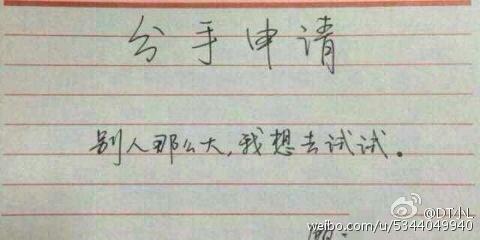 分手申请
别人那么大,我想去试试。
@DT4L
weibo.com/u/5344049940